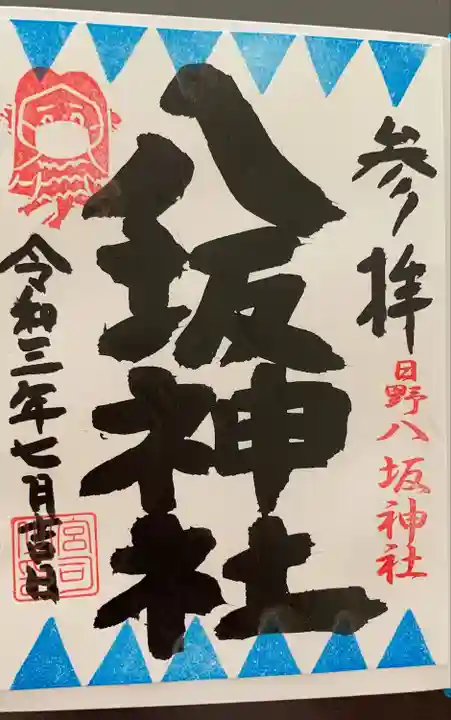 参拝
日野八坂神社
八坂神社
令和三年七月吉日